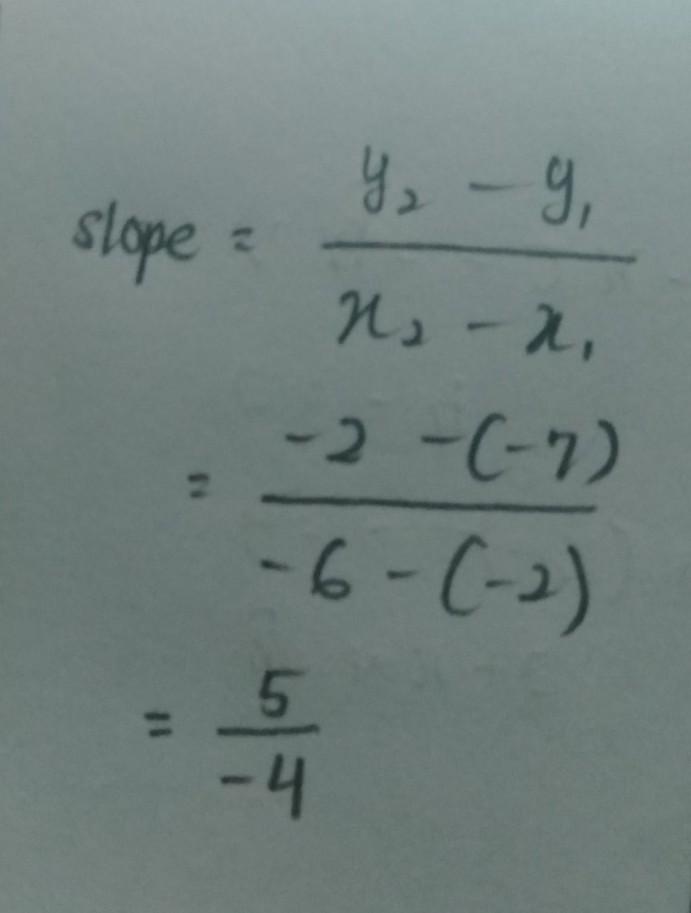 slope = y₂ - y₁ / x₂ - x₁
= -2 -(-7) / -6 - (-2)
= 5 / -4